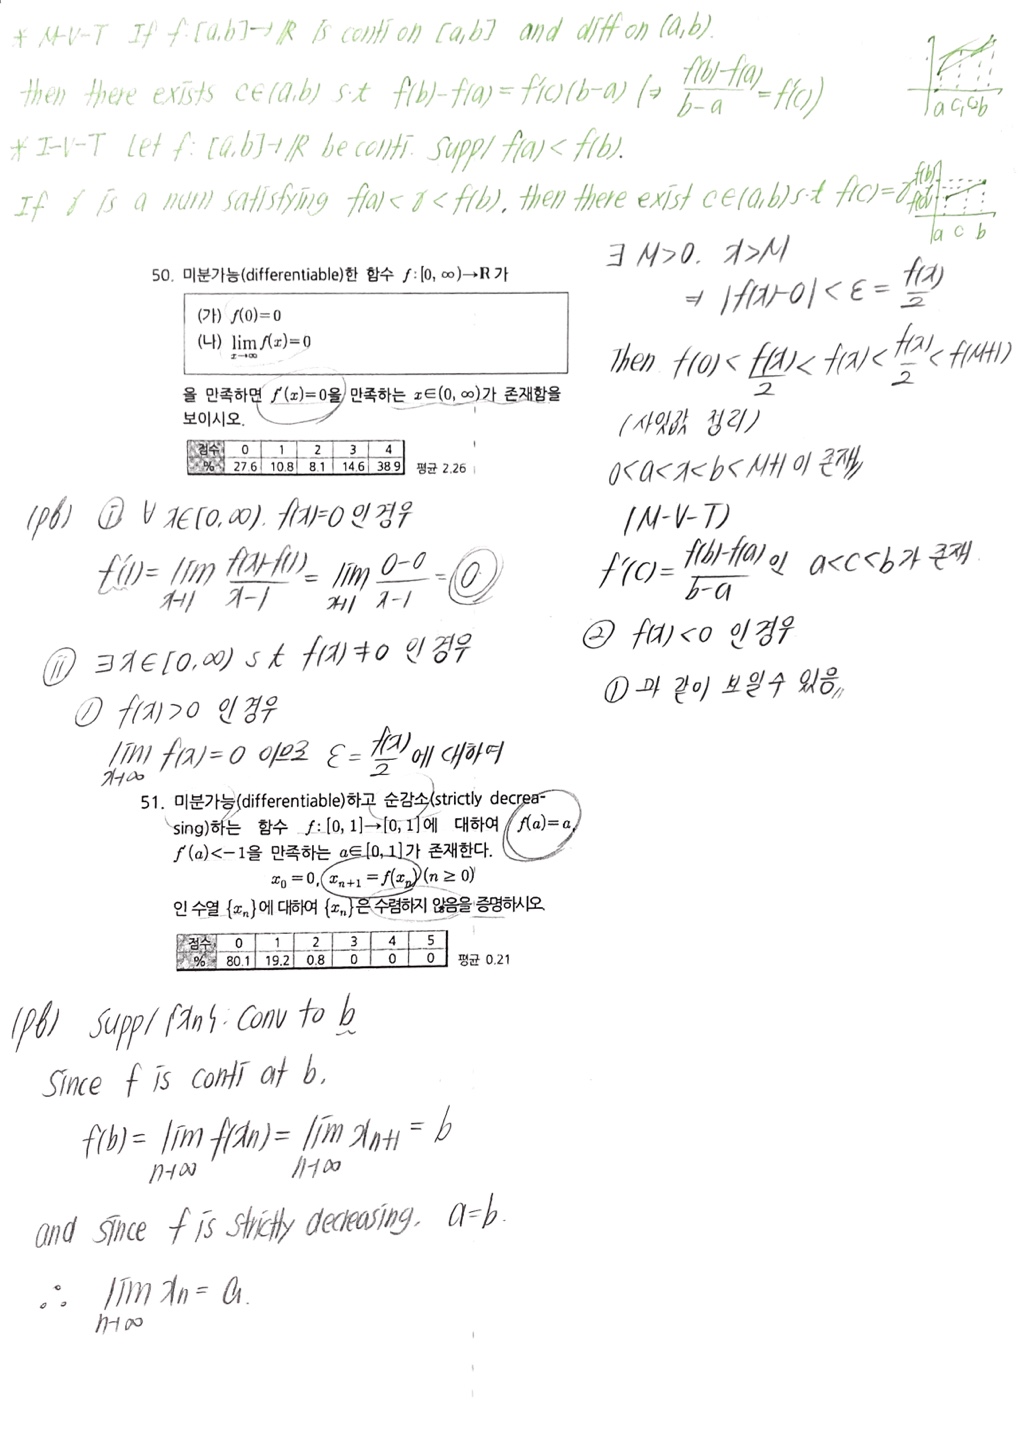 * M-V-T If f:[a,b]→ℝ is conti on [a,b] and diff on (a,b).
then there exists c∈(a,b) s·t f(b)-f(a)=f'(c)(b-a) (⇒ f(b)-f(a)/b-a = f'(c))
a c₁ c₂ b
* I-V-T Let f:[a,b]→ℝ be conti. supp/ f(a)<f(b).
If γ is a num satisfying f(a)<γ<f(b), then there exist c∈(a,b) s·t f(c)=γ
f(b)
f(a)
a c b
50. 미분가능(differentiable)한 함수 f:[0, ∞)→R가
(가) f(0)=0
(나) lim x→∞ f(x)=0
을 만족하면 f'(x)=0을 만족하는 x∈(0, ∞)가 존재함을
보이시오.
점수 0 1 2 3 4
% 27.6 10.8 8.1 14.6 38.9 평균 2.26
(pf) ⓘ ∀ x∈[0,∞). f(x)=0 인 경우
f'(1)= lim x→1 f(x)-f(1)/x-1 = lim x→1 0-0/x-1 = 0
ⓘⓘ ∃x∈[0,∞) s t f(x)≠0 인 경우
① f(x)>0 인 경우
lim x→∞ f(x)=0 이므로 ε= f(x)/2 에 대하여
∃ M>0. x>M
⇒ |f(x)-0|<ε= f(x)/2
Then f(0)< f(x)/2 < f(x)< f(x)/2 < f(M+1)
(사잇값 정리)
0<a<x<b<M+1 이 존재//
(M-V-T)
f'(c)= f(b)-f(a)/b-a 인 a<c<b가 존재.
② f(x)<0 인 경우
①과 같이 보일 수 있음//
51. 미분가능(differentiable)하고 순감소(strictly decrea-
sing)하는 함수 f:[0, 1]→[0, 1]에 대하여 f(a)=a,
f'(a)<-1을 만족하는 a∈[0, 1]가 존재한다.
x₀=0, xₙ₊₁=f(xₙ) (n≥0)
인 수열 {xₙ}에 대하여 {xₙ}은 수렴하지 않음을 증명하시오.
점수 0 1 2 3 4 5
% 80.1 19.2 0.8 0 0 0 평균 0.21
(pf) supp/ {xn}: conv to b
since f is conti at b.
f(b)= lim n→∞ f(xn)= lim n→∞ xn+1 = b
and since f is strictly decreasing. a=b.
∴ lim n→∞ xn= a.